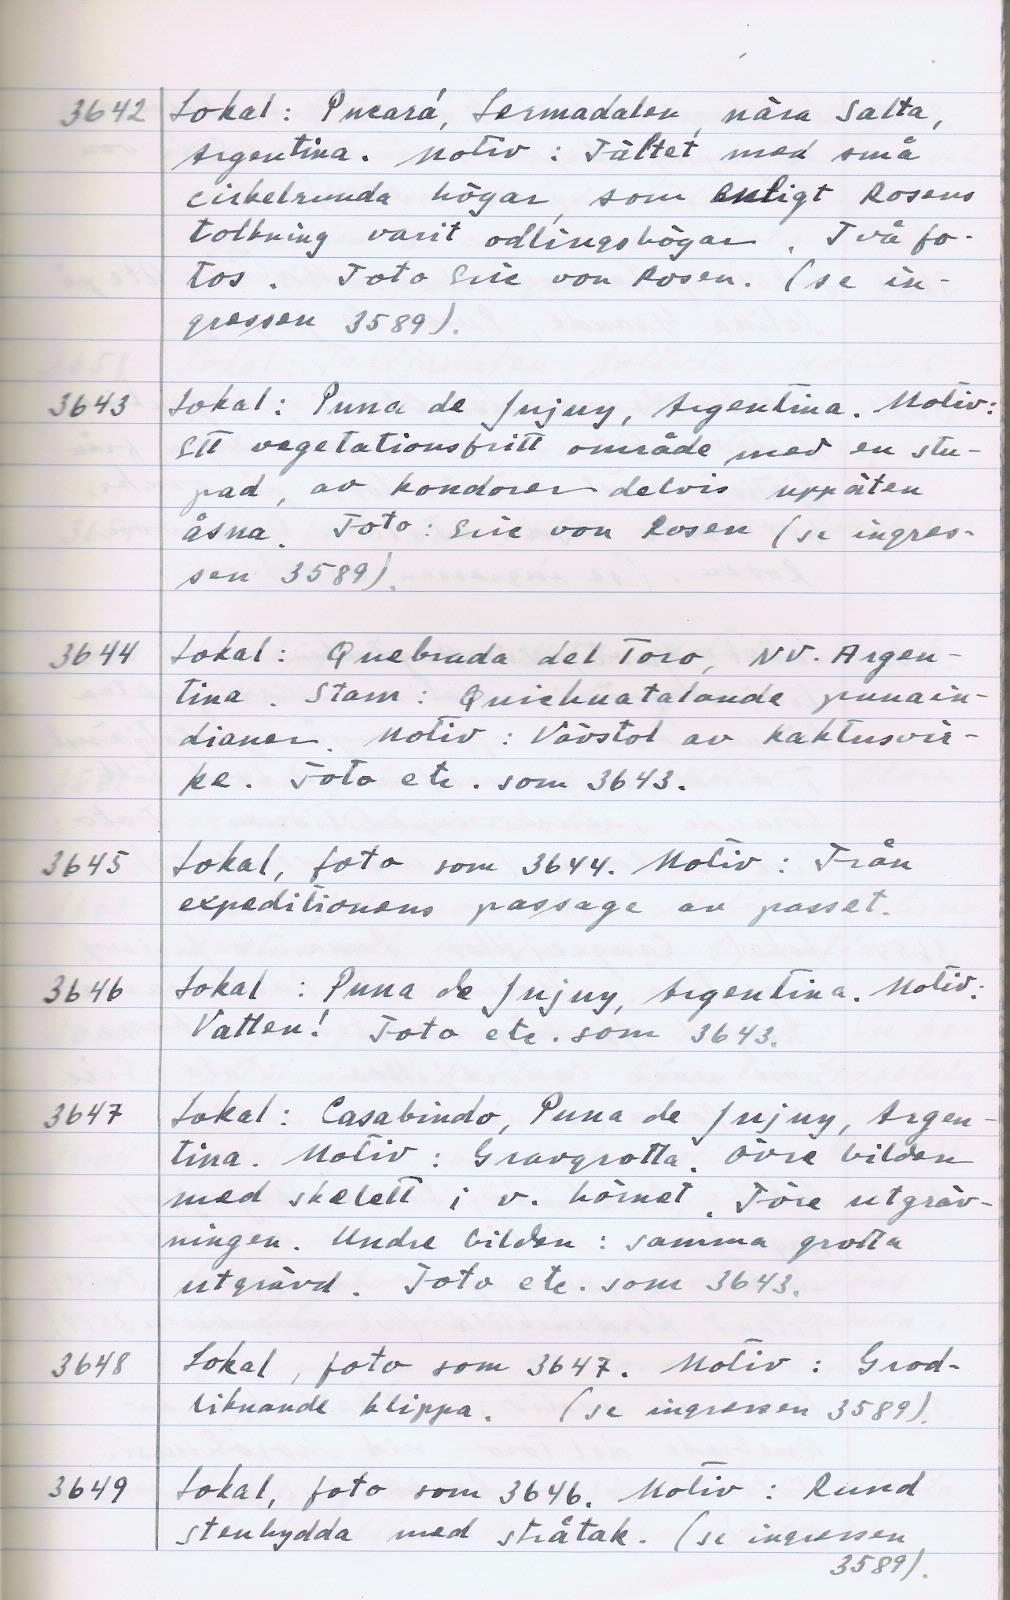 3642 Lokal: Pucará, Lermadalen, nära Salta,
Argentina. Motiv: Fältet med små
cirkelrunda högar, som enligt Rosens
tolkning varit odlingshögar. Två fo-
tos. Foto Eric von Rosen. (se in-
gressen 3589).
3643 Lokal: Puna de Jujuy, Argentina. Motiv:
Ett vegetationsfritt område med en stu-
pad, av kondorer delvis uppäten
åsna. Foto: Eric von Rosen (se ingres-
sen 3589).
3644 Lokal: Quebrada del Toro, NV. Argen-
tina. Stam: Quichuatalande punain-
dianer. Motiv: Vävstol av kaktusvir-
ke. Foto etc. som 3643.
3645 Lokal, foto som 3644. Motiv: Från
expeditionens passage av passet.
3646 Lokal: Puna de Jujuy, Argentina. Motiv:
Vatten! Foto etc. som 3643.
3647 Lokal: Casabindo, Puna de Jujuy, Argen-
tina. Motiv: Gravgrotta. Övre bilden
med skelett i v. hörnet. Före utgräv-
ningen. Undre bilden: samma grotta
utgrävd. Foto etc. som 3643.
3648 Lokal, foto som 3647. Motiv: Grod-
liknande klippa. (se ingressen 3589).
3649 Lokal, foto som 3646. Motiv: Rund
stenhydda med stråtak. (se ingressen
3589).